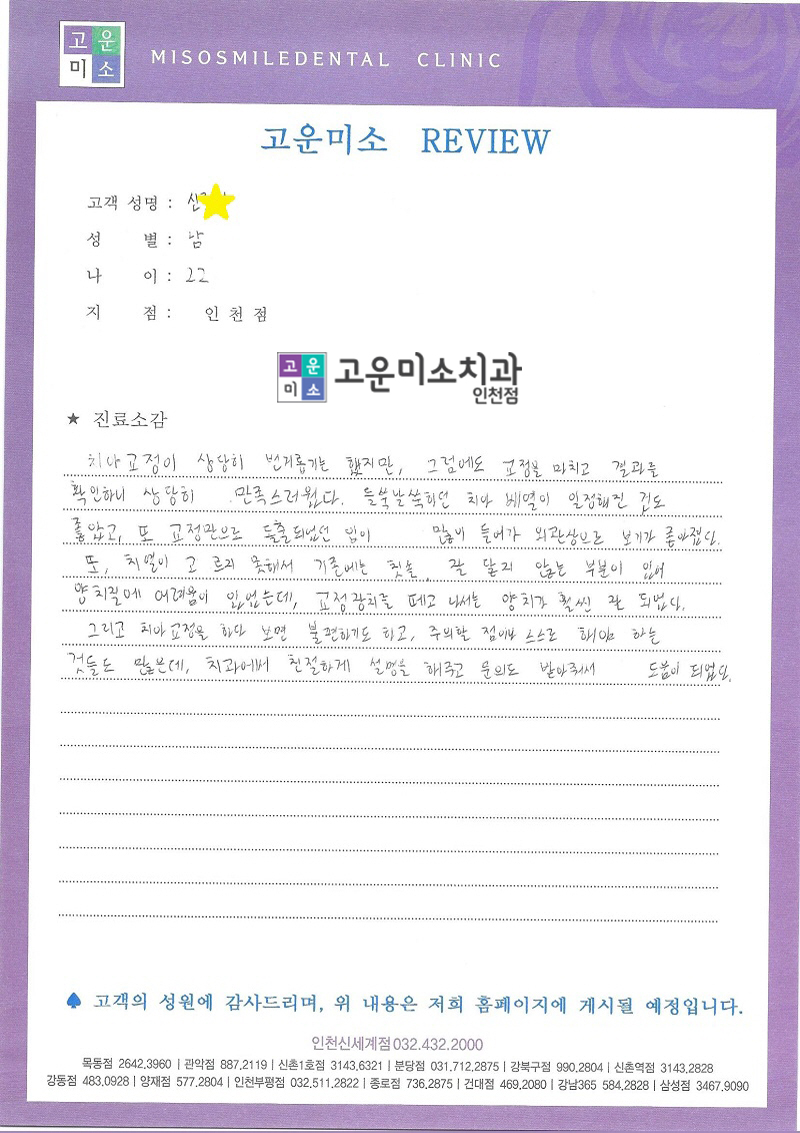 고운
미소
MISOSMILEDENTAL CLINIC
고운미소 REVIEW
고객 성명 : 신
성 별 : 남
나 이 : 22
지 점 : 인천점
고운
미소
고운미소치과
인천점
★ 진료소감
치아교정이 상당히 번거롭기는 했지만, 그럼에도 교정을 마치고 결과를
확인하니 상당히 만족스러웠다. 들쑥날쑥하던 치아 배열이 일정해진 것도
좋았고, 또 교정만으로 돌출되었던 입이 많이 들어가 외관상으로 보기가 좋아졌다.
또, 치열이 고르지 못해서 기존에는 칫솔 잘 닿지 않는 부분이 있어
양치질에 어려움이 있었는데, 교정장치를 떼고 나서는 양치가 훨씬 잘 되었다.
그리고 치아교정을 하다 보면 불편하기도 하고, 주의할 점이나 스스로 해야 하는
것들도 많은데, 치과에서 친절하게 설명을 해주고 문의도 받아줘서 도움이 되었다.
♠ 고객의 성원에 감사드리며, 위 내용은 저희 홈페이지에 게시될 예정입니다.
인천신세계점 032.432.2000
목동점 2642.3960 | 관악점 887.2119 | 신촌1호점 3143.6321 | 분당점 031.712.2875 | 강북구점 990.2804 | 신촌역점 3143.2828
강동점 483.0928 | 양재점 577.2804 | 인천부평점 032.511.2822 | 종로점 736.2875 | 건대점 469.2080 | 강남365 584.2828 | 삼성점 3467.9090